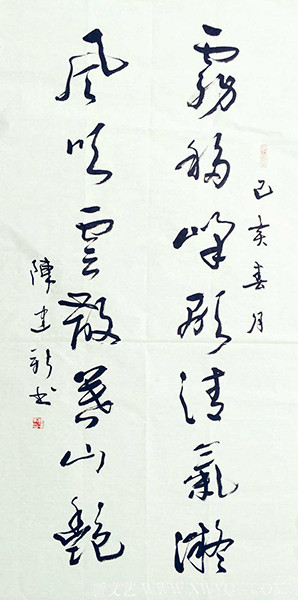 己亥春月
霧移峰顯清氣凝
風吹雲散萬山艷
陳建新书